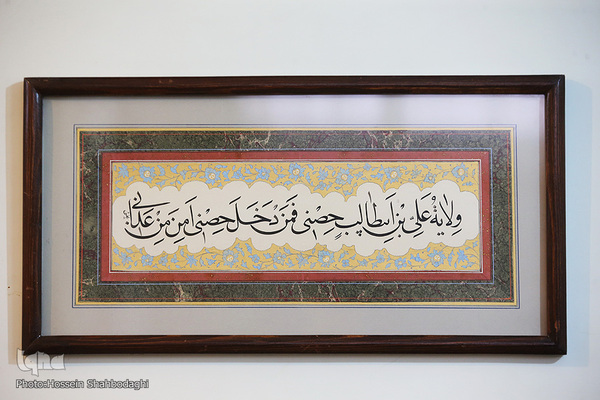 وِلایَةُ عَلیِّ بْنِ اَبیطالِبٍ حِصْنی فَمَنْ دَخَلَ حِصْنی اَمِنَ مِنْ عَذابی
iqna
Photo:Hossein Shahbodaghi